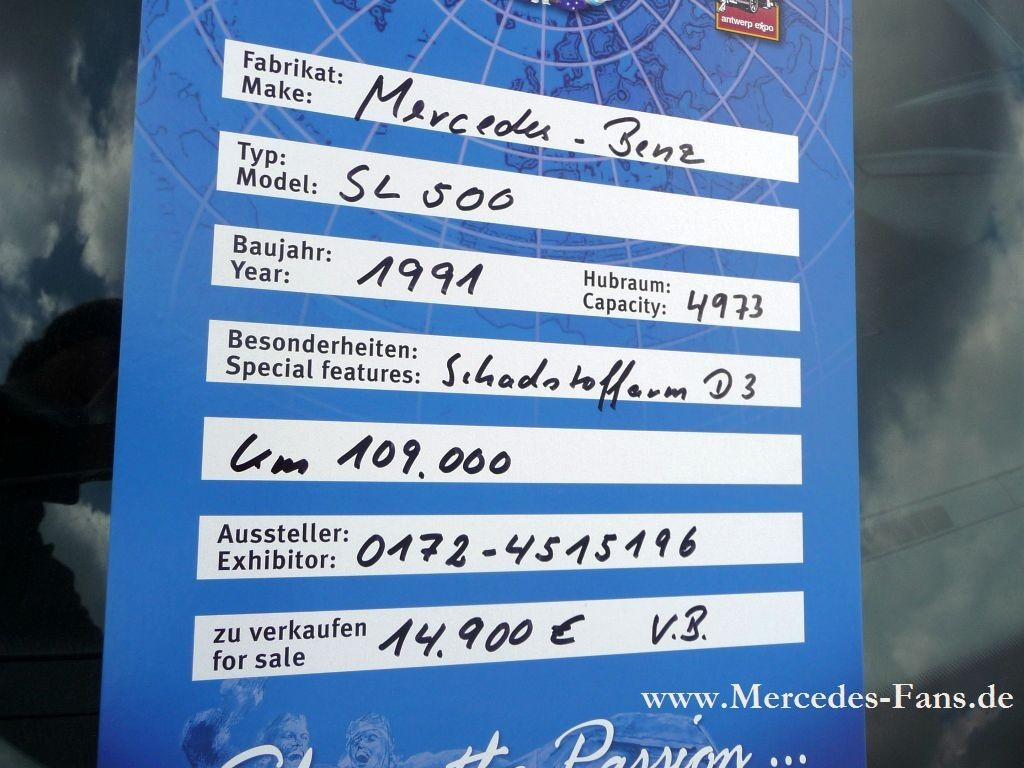 antwerp expo
Fabrikat:
Make: Mercedes - Benz
Typ:
Model: SL 500
Baujahr:
Year: 1991
Hubraum:
Capacity: 4973
Besonderheiten:
Special features: Schadstoffarm D3
km 109.000
Aussteller:
Exhibitor: 0172-4515196
zu verkaufen
for sale 14.900 € V.B.
www.Mercedes-Fans.de
the Passion ...